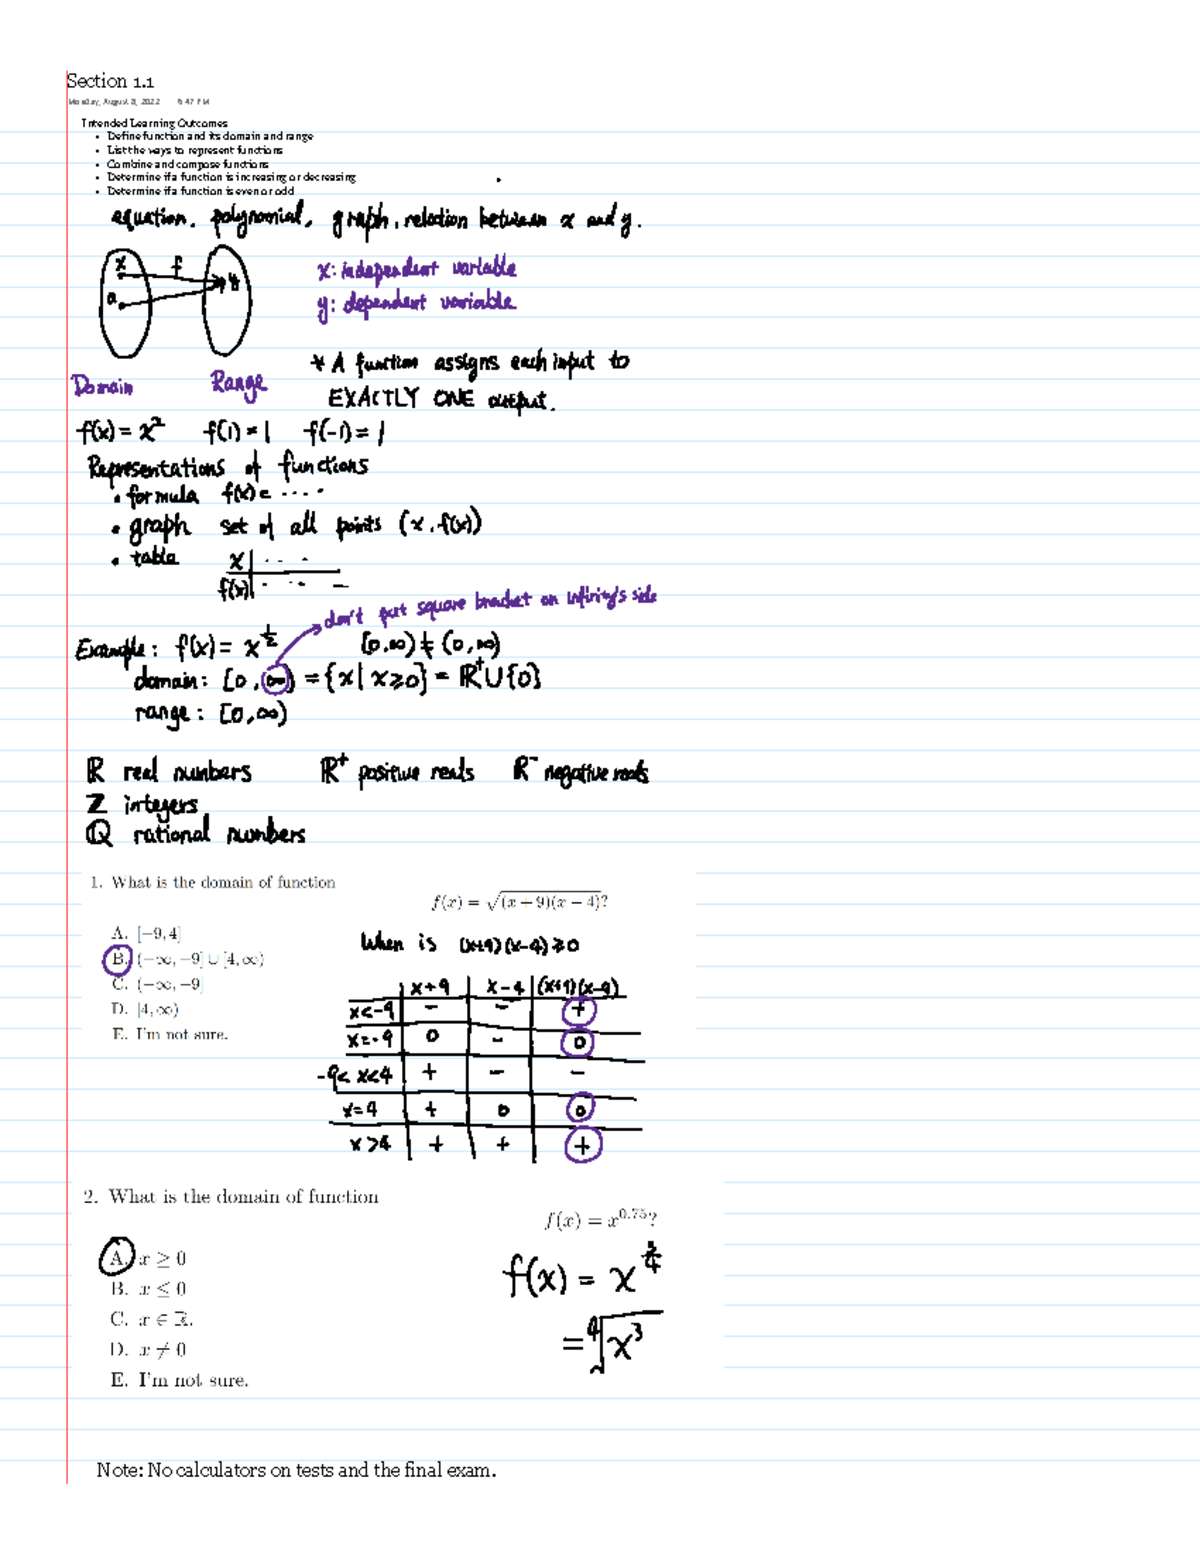 Section 1.1
Monday, August 8, 2022 6:47 PM
Intended Learning Outcomes
• Define function and its domain and range
• List the ways to represent functions
• Combine and compose functions
• Determine if a function is increasing or decreasing
• Determine if a function is even or odd
equation, polynomial, graph, relation between x and y.
x f
a
x: independent variable
y: dependent variable
* A function assigns each input to
EXACTLY ONE output.
Domain Range
f(x) = x² f(1) = 1 f(-1) = 1
Representations of functions
• formula f(x) = ....
• graph set of all points (x, f(x))
• table x
f(x)
don't put square bracket on infinity's side
Example: f(x) = x^½ [0,∞) ≠ (0,∞)
domain: [0,∞) = {x | x≥0} = ℝ⁺∪{0}
range: [0,∞)
ℝ real numbers ℝ⁺ positive reals ℝ⁻ negative reals
ℤ integers
ℚ rational numbers
1. What is the domain of function
f(x) = √(x + 9)(x − 4)?
A. [−9, 4]
B. (−∞, −9] ∪ [4, ∞)
C. (−∞, −9]
D. [4, ∞)
E. I'm not sure.
When is (x+9)(x-4) ≥ 0
x+9 x-4 (x+9)(x-4)
x<-9 - - +
x=-9 0 - 0
-9< x<4 + - -
x=4 + 0 0
x>4 + + +
2. What is the domain of function
f(x) = x^0.75?
A. x ≥ 0
B. x ≤ 0
C. x ∈ ℝ.
D. x ≠ 0
E. I'm not sure.
f(x) = x^¾
= ⁴√x³
Note: No calculators on tests and the final exam.